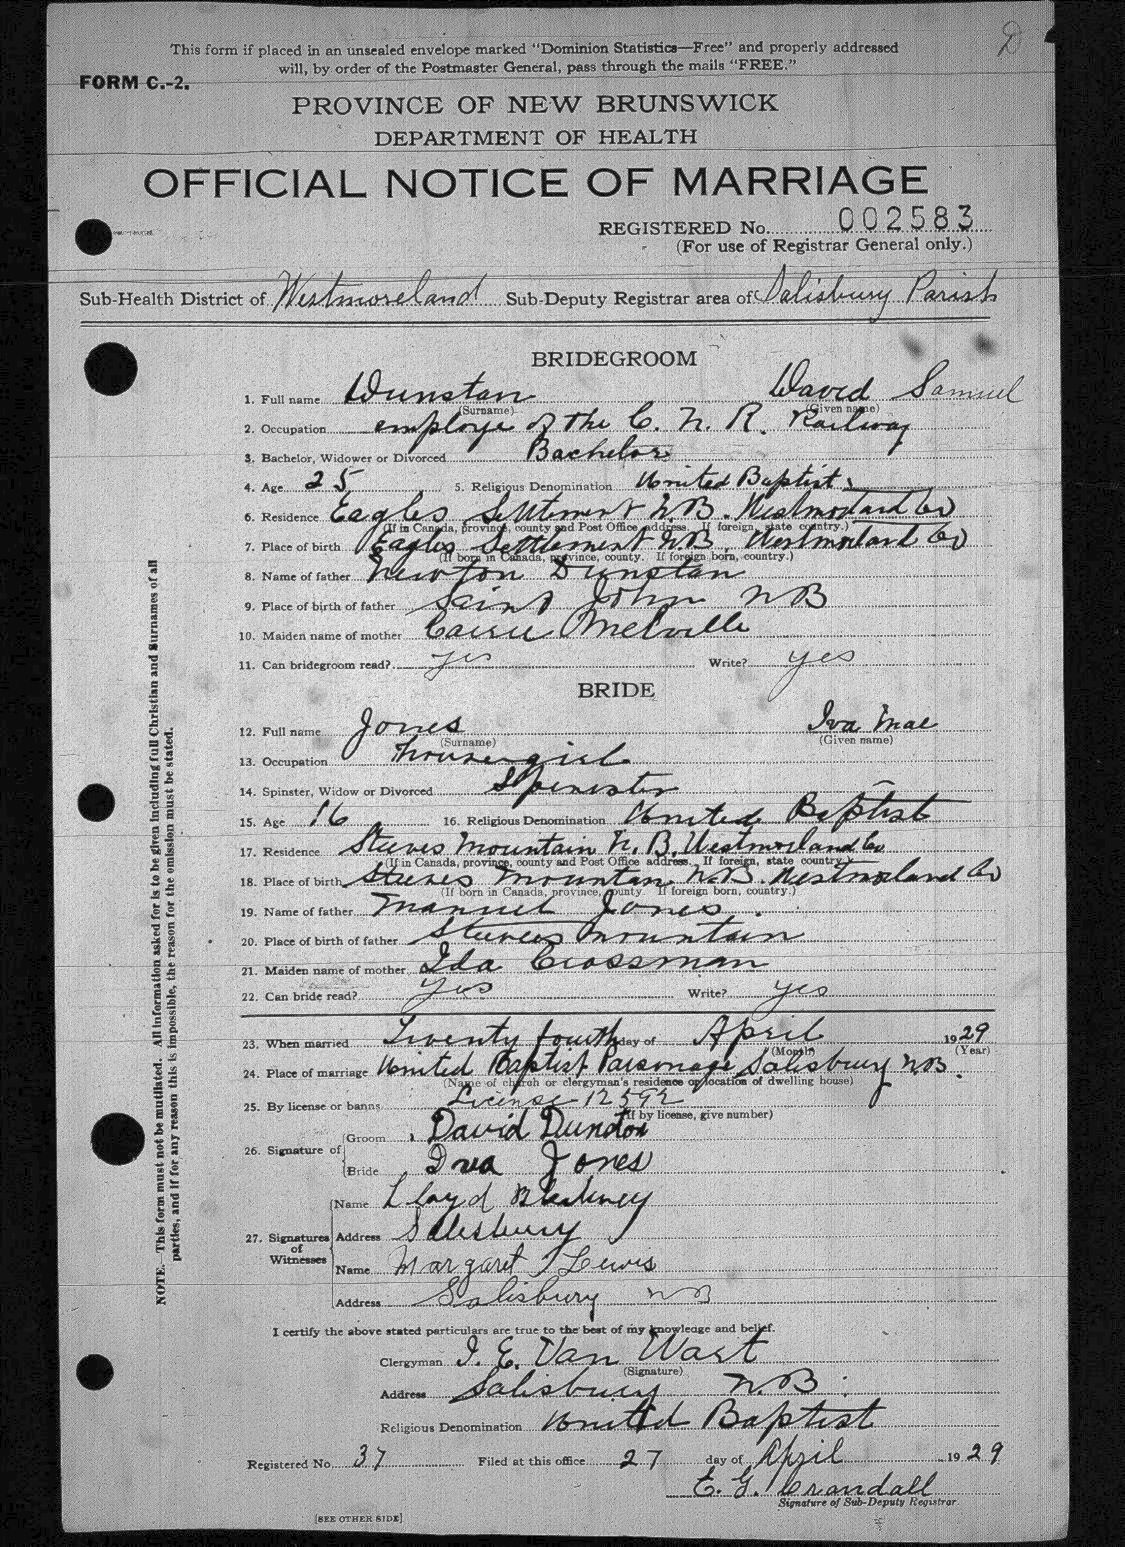 D
This form if placed in an unsealed envelope marked "Dominion Statistics—Free" and properly addressed
will, by order of the Postmaster General, pass through the mails "FREE."
FORM C.-2.
PROVINCE OF NEW BRUNSWICK
DEPARTMENT OF HEALTH
OFFICIAL NOTICE OF MARRIAGE
REGISTERED No. 002583
(For use of Registrar General only.)
Sub-Health District of Westmoreland Sub-Deputy Registrar area of Salisbury Parish
BRIDEGROOM
1. Full name Dunstan David Samuel
(Surname) (Given name)
2. Occupation employe of the C. N. R. Railway
3. Bachelor, Widower or Divorced Bachelor
4. Age 25 5. Religious Denomination United Baptist
6. Residence Eagles Settlement N.B. Westmorland Co
(If in Canada, province, county and Post Office address. If foreign, state country.)
7. Place of birth Eagles Settlement N.B. Westmorland Co
(If born in Canada, province, county. If foreign born, country.)
8. Name of father Newton Dunstan
9. Place of birth of father Saint John NB
10. Maiden name of mother Carrie Melville
11. Can bridegroom read? yes Write? yes
BRIDE
12. Full name Jones Iva Mae
(Surname) (Given name)
13. Occupation Housegirl
14. Spinster, Widow or Divorced Spinister
15. Age 16 16. Religious Denomination United Baptist
17. Residence Steeves Mountain N. B. Westmorland Co
(If in Canada, province, county and Post Office address. If foreign, state country.)
18. Place of birth Steeves Mountan N.B. Westmorland Co
(If born in Canada, province, county. If foreign born, country.)
19. Name of father Manuel Jones.
20. Place of birth of father Steeves Mountain
21. Maiden name of mother Ida Crossman
22. Can bride read? yes Write? yes
23. When married Twenty fourth day of April 1929
(Month) (Year)
24. Place of marriage United Baptist Parsonage Salisbury N.B.
(Name of church or clergyman's residence or location of dwelling house)
25. By license or banns License 12592
(If by license, give number)
26. Signature of
Groom David Dunston
Bride Iva Jones
27. Signatures of Witnesses
Name Lloyd Blakney
Address Salesbury
Name Margaret Lewis
Address Salisbury NB
I certify the above stated particulars are true to the best of my knowledge and belief.
Clergyman I. E. Van Wart
(Signature)
Address Salisbury N.B.
Religious Denomination United Baptist
Registered No. 37 Filed at this office 27 day of April 1929
E. G. Crandall
Signature of Sub-Deputy Registrar
[SEE OTHER SIDE]
NOTE.—This form must not be mutilated. All information asked for is to be given including full Christian and Surnames of all
parties, and if for any reason this is impossible, the reason for the omission must be stated.